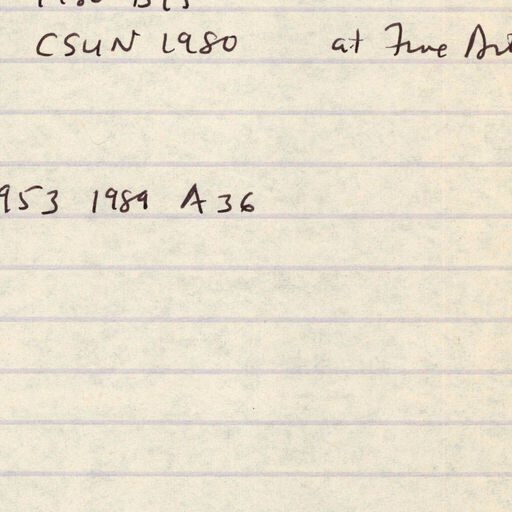 CSUN 1980 at Fine
953 1989 A36